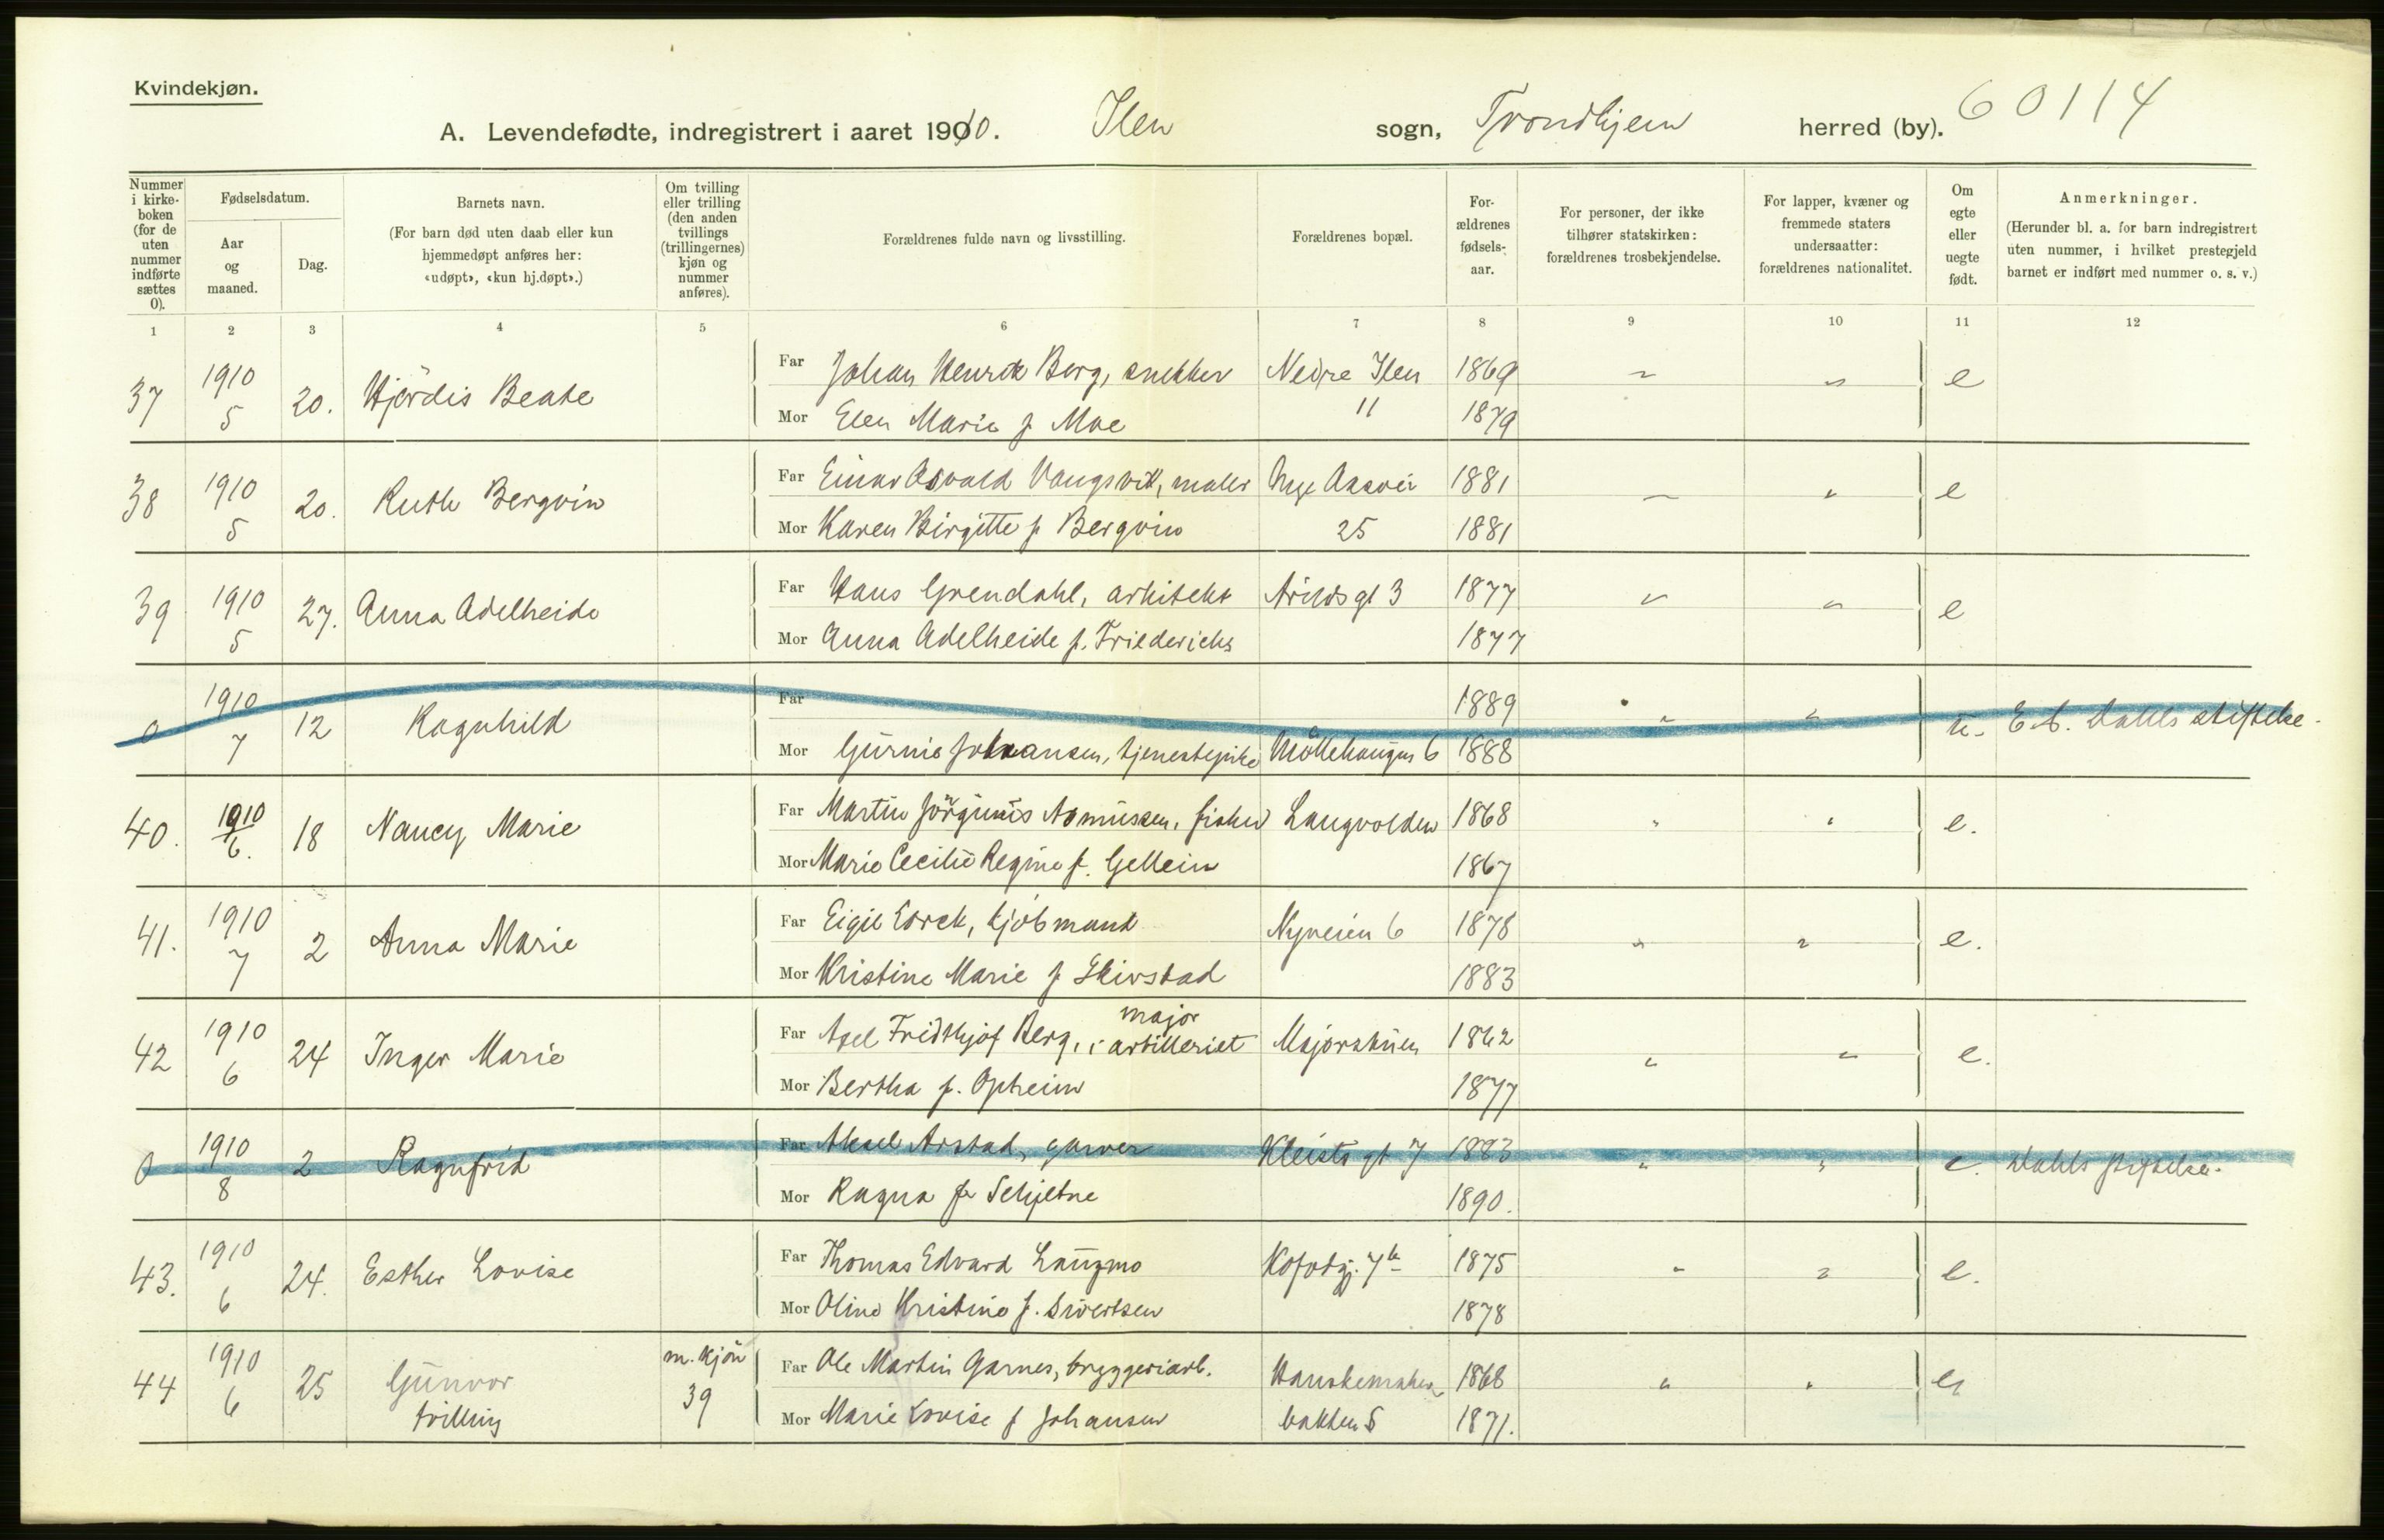 Kvindekjøn.
A. Levendefødte, indregistrert i aaret 1910. Ilen sogn, Trondhjem herred (by). 60114
Nummer i kirkeboken (for de uten nummer indførte sættes 0).
Fødselsdatum.
Aar og maaned.
Dag.
Barnets navn.
(For barn død uten daab eller kun hjemmedøpt anføres her: «udøpt», «kun hj.døpt».)
Om tvilling eller trilling (den anden tvillings (trillingernes) kjøn og nummer anføres).
Forældrenes fulde navn og livsstilling.
Forældrenes bopæl.
Forældrenes fødselsaar.
For personer, der ikke tilhører statskirken: forældrenes trosbekjendelse.
For lapper, kvæner og fremmede staters undersaatter: forældrenes nationalitet.
Om egte eller uegte født.
Anmerkninger.
(Herunder bl. a. for barn indregistrert uten nummer, i hvilket prestegjeld barnet er indført med nummer o. s. v.)
1 2 3 4 5 6 7 8 9 10 11 12
37 1910 5 20. Hjördis Beate
Far Johan Henrik Berg, snekker Nedre Ilen 1869 " " e
Mor Elen Marie f. Moe " 1879
38 1910 5 20. Ruth Bergvin
Far Einar Osvald Vangsvik, maler Nye Aasvei 1881 " " e
Mor Karen Birgitte f. Bergvin 25 1881
39 1910 5 27. Anna Adelheide
Far Hans Grendahl, arkitekt Arilds gt 3 1877 " " e
Mor Anna Adelheide f. Friederichs 1877
0 1910 7 12 Ragnhild
Far 1889 " " u. E. C. Dahls stiftelse.
Mor Johansen, tjenestepike Möllehaugen 6 1888
40. 1910 6. 18 Nancy Marie
Far Martin Jörginus Asmussen, fisker Langvolden 1868 " " e.
Mor Marie Cecilie Regine f. Gellein 1867
41. 1910 7 2 Anna Marie
Far Eigil Lorck, kjöbmand Nyveien 6 1878 " " e.
Mor Kristine Marie f. Skirstad 1883
42 1910 6 24 Inger Marie
Far Axel Fridthjof Berg, major i artilleriet Majorstuen 1862 " " e.
Mor Bertha f. Opheim 1877
0 1910 8 2 Ragnfrid
Far Aksel Arstad, garver Kleists gt 7 1883 " " e. Dahls stiftelse.
Mor Ragna f. Schjetne 1890.
43. 1910 6 24. Esther Lovise
Far Thomas Edvard Langmo 1875 " " e.
Mor Oline Kristine f. Sivertsen 1878
44 1910 6 25 Gunvor tvilling m. kjön 39
Far Ole Martin Garnes, bryggeriarb. Hanskemaker 1868 " " e
Mor Marie Lovise f. Johansen bakken 5 1871.